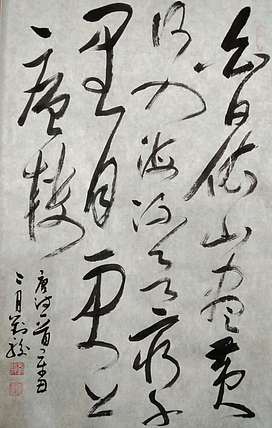 白日依山盡黄
河入海流欲窮千
里目更上
一層樓
唐詩一首辛丑
二月劉